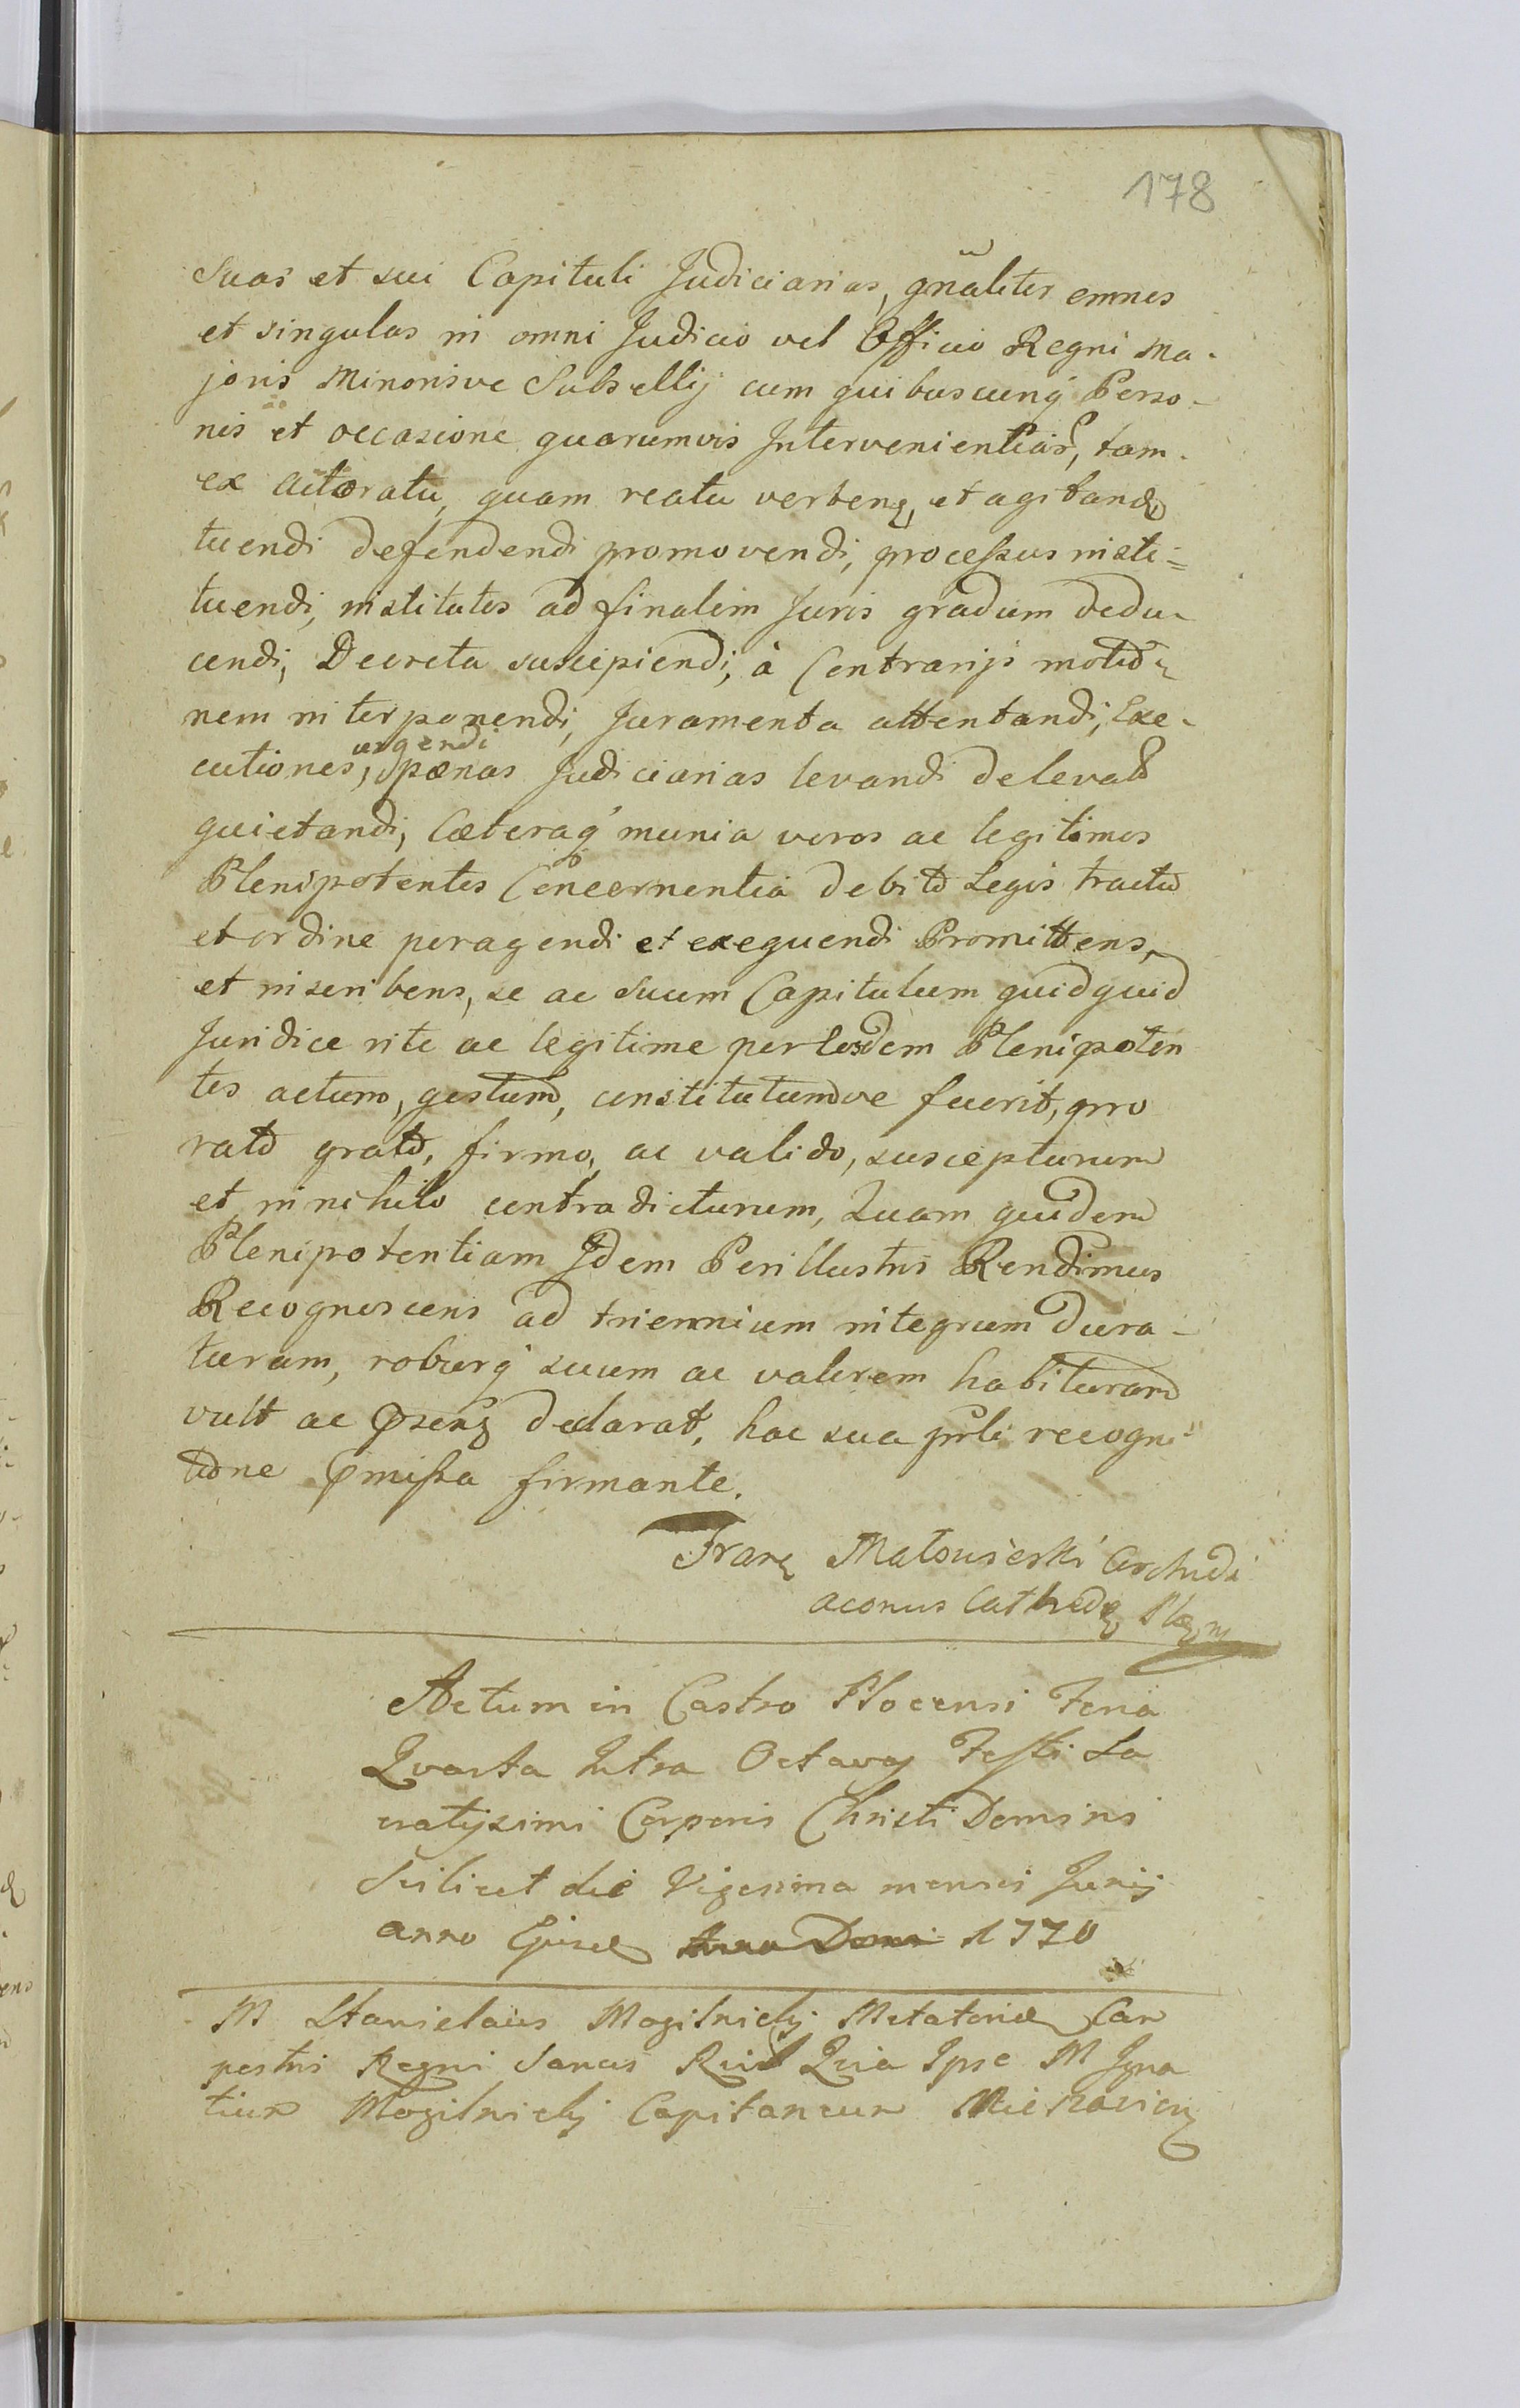 178
Suas et sui Capituli Judiciarias, gn̄aliter omnes
et singulas in omni Judicio vel Officio Regni Ma-
joris Minorisve Subsellij cum quibuscunq́ Perso-
nis et occasione quarumvis Intervenientias, tam
ex actoratu, quam reatu verten. et agitand.
tuendi defendendi promovendi, processus insti=
tuendi, institutos ad finalem Juris gradum dedu-
cendi, Decreta suscipiendi, à Contrarijs motio-
nem interponendi, Juramenta attentandi, Exe-
urgendi
cutiones, pœnas Judiciarias levandi de levat
quietandi, Cæteraq́ munia veros ac legitimos
Plenipotentes Concernentia debito Legis tractu
et ordine peragendi et exequendi Promittens,
et inscribens, se ac Suum Capitulum quidquid
Juridice rite ac legitime per eosdem Plenipoten
tes actum, gestum, constitutumve fuerit, pro
rato grato, firmo, ac valido, suscepturum
et in nihilo contradicturum, Quam quidem
Plenipotentiam Idem Perillustris Rendimus
Recognoscens ad triennium integrum dura-
turam, roburq́ suum ac valorem habituram
vult ac declarat, hac sua recogni
tione pmissa firmante.
Franc Matowieski Archidi
aconus Cathedr
Actum in Castro Plocensi Feria
Quarta Intra Octavas Festi Sa
cratissimi Corporis Christi Domini
Scilicet die Vigesima mensis Junij
anno Ejusd Anno Domi 1770
M Stanislaus Mogilnicky Metatoriæ Can
pestris Regni Sanus Quia Ipse M Igna
tium Mogilnicky Capitaneum